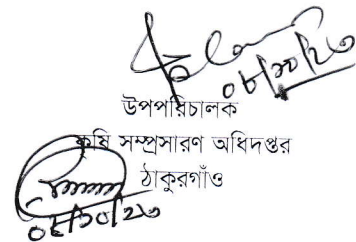 ০৮/১০/২৩
উপপরিচালক
কৃষি সম্প্রসারণ অধিদপ্তর
ঠাকুরগাঁও
০৮/১০/২৩